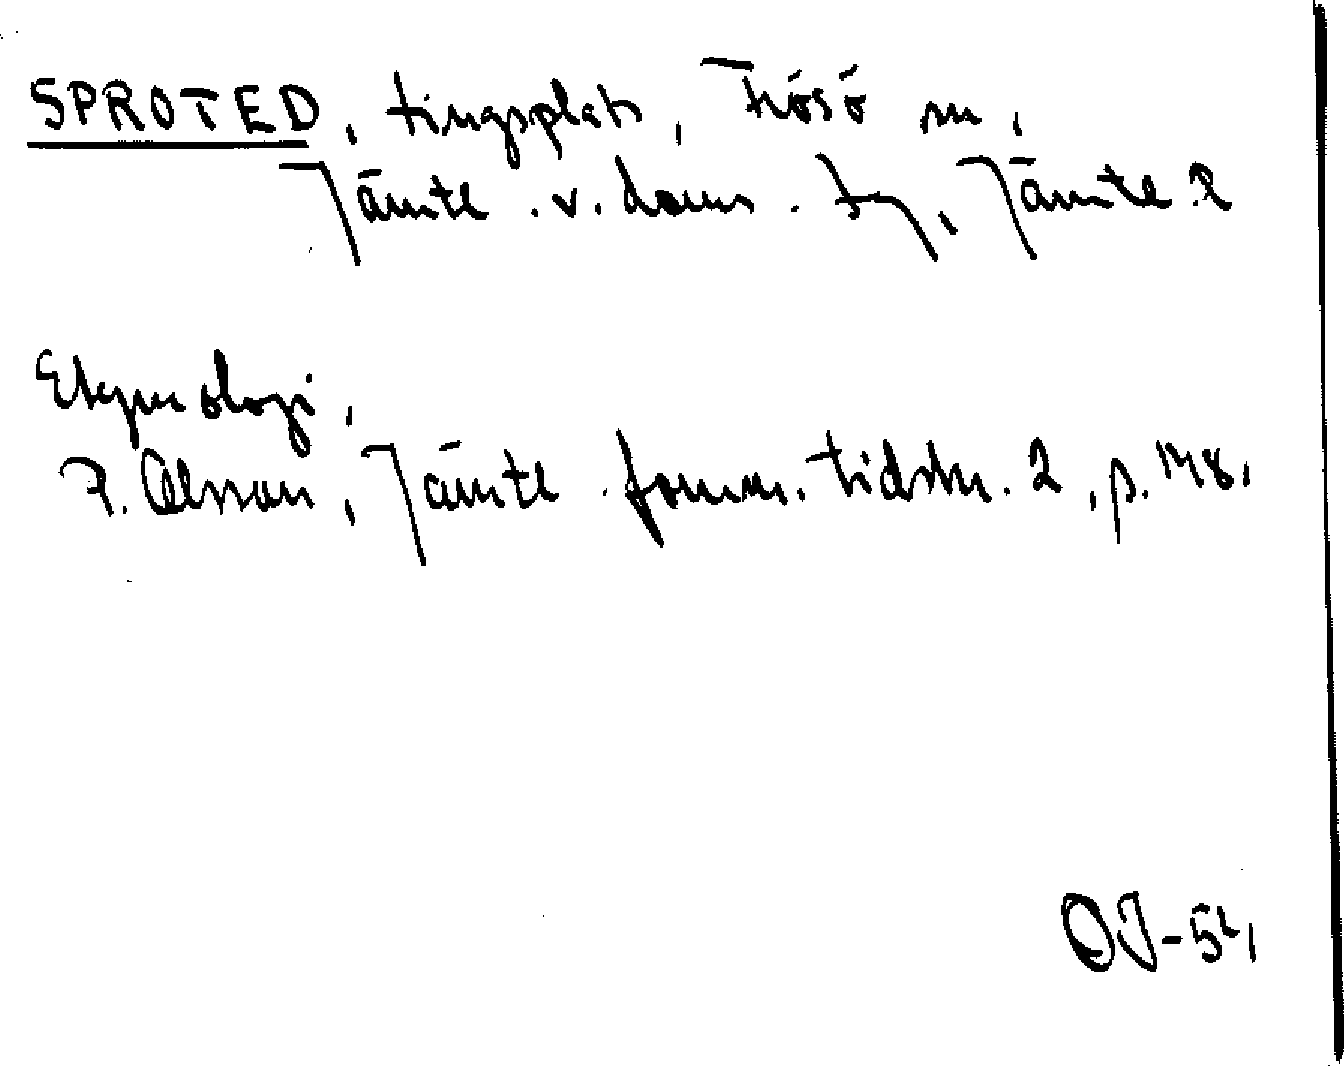 SPROTED, tingsplats, Frösö sn,
Jämtl. v. doms. tg, Jämtl.
Etymologi,
P. Olsson, Jämtl. fornm. tidskr. 2, p. 148.
OJ-54